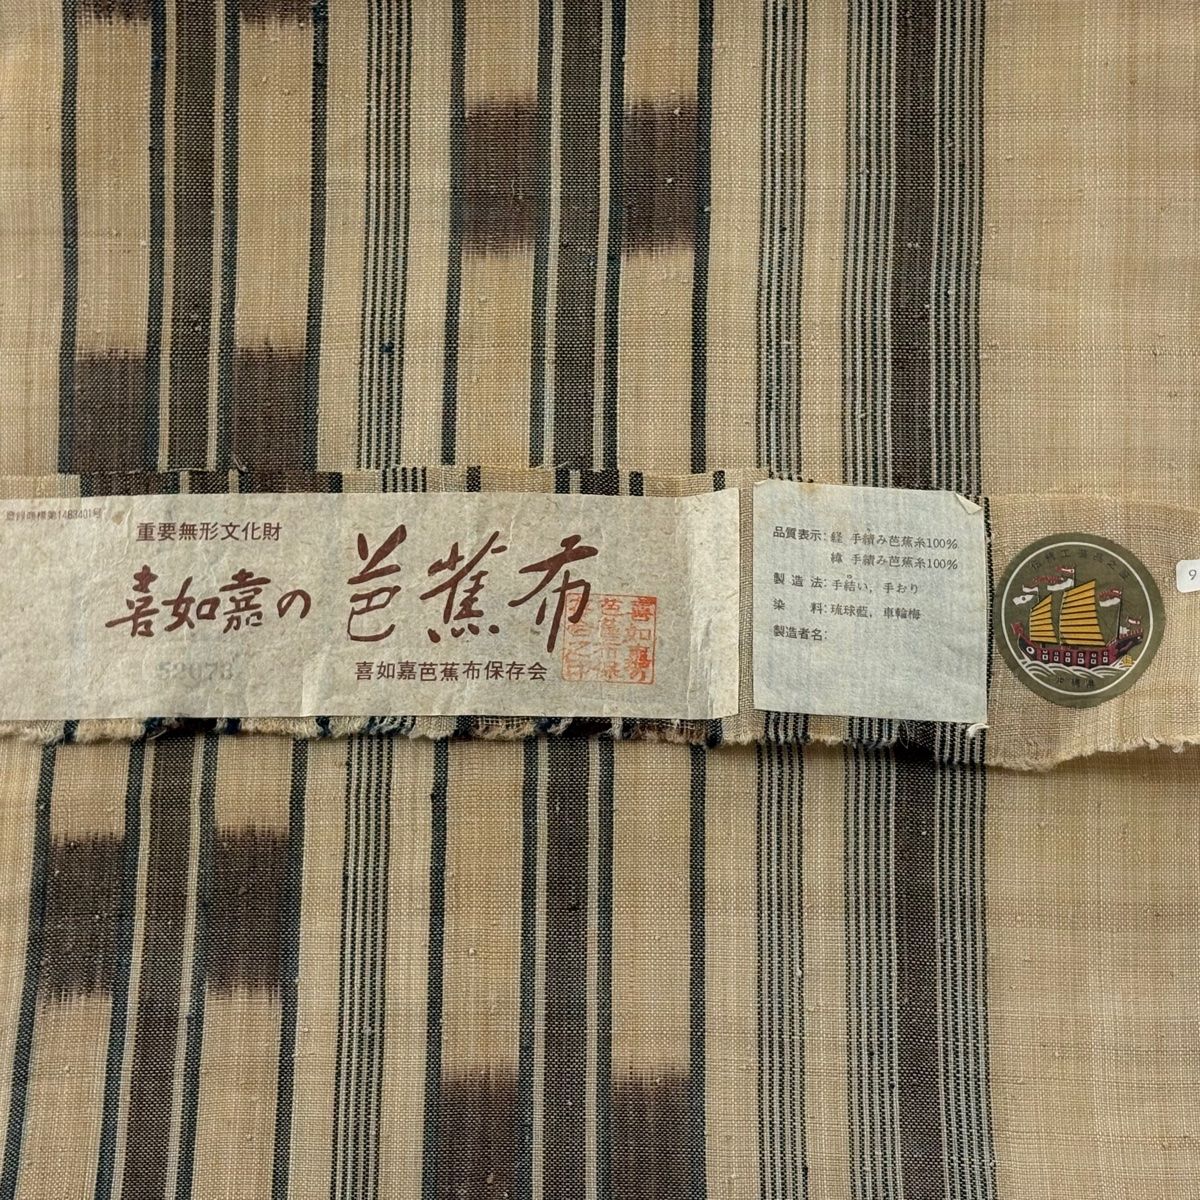 登録商標第1463401号
重要無形文化財
喜如嘉の芭蕉布
喜如嘉芭蕉布保存会
52078
品質表示:経 手績み芭蕉糸100%
緯 手績み芭蕉糸100%
製造法:手結い,手おり
染料:琉球藍,車輪梅
製造者名:
伝統工芸品之証
沖縄県
9